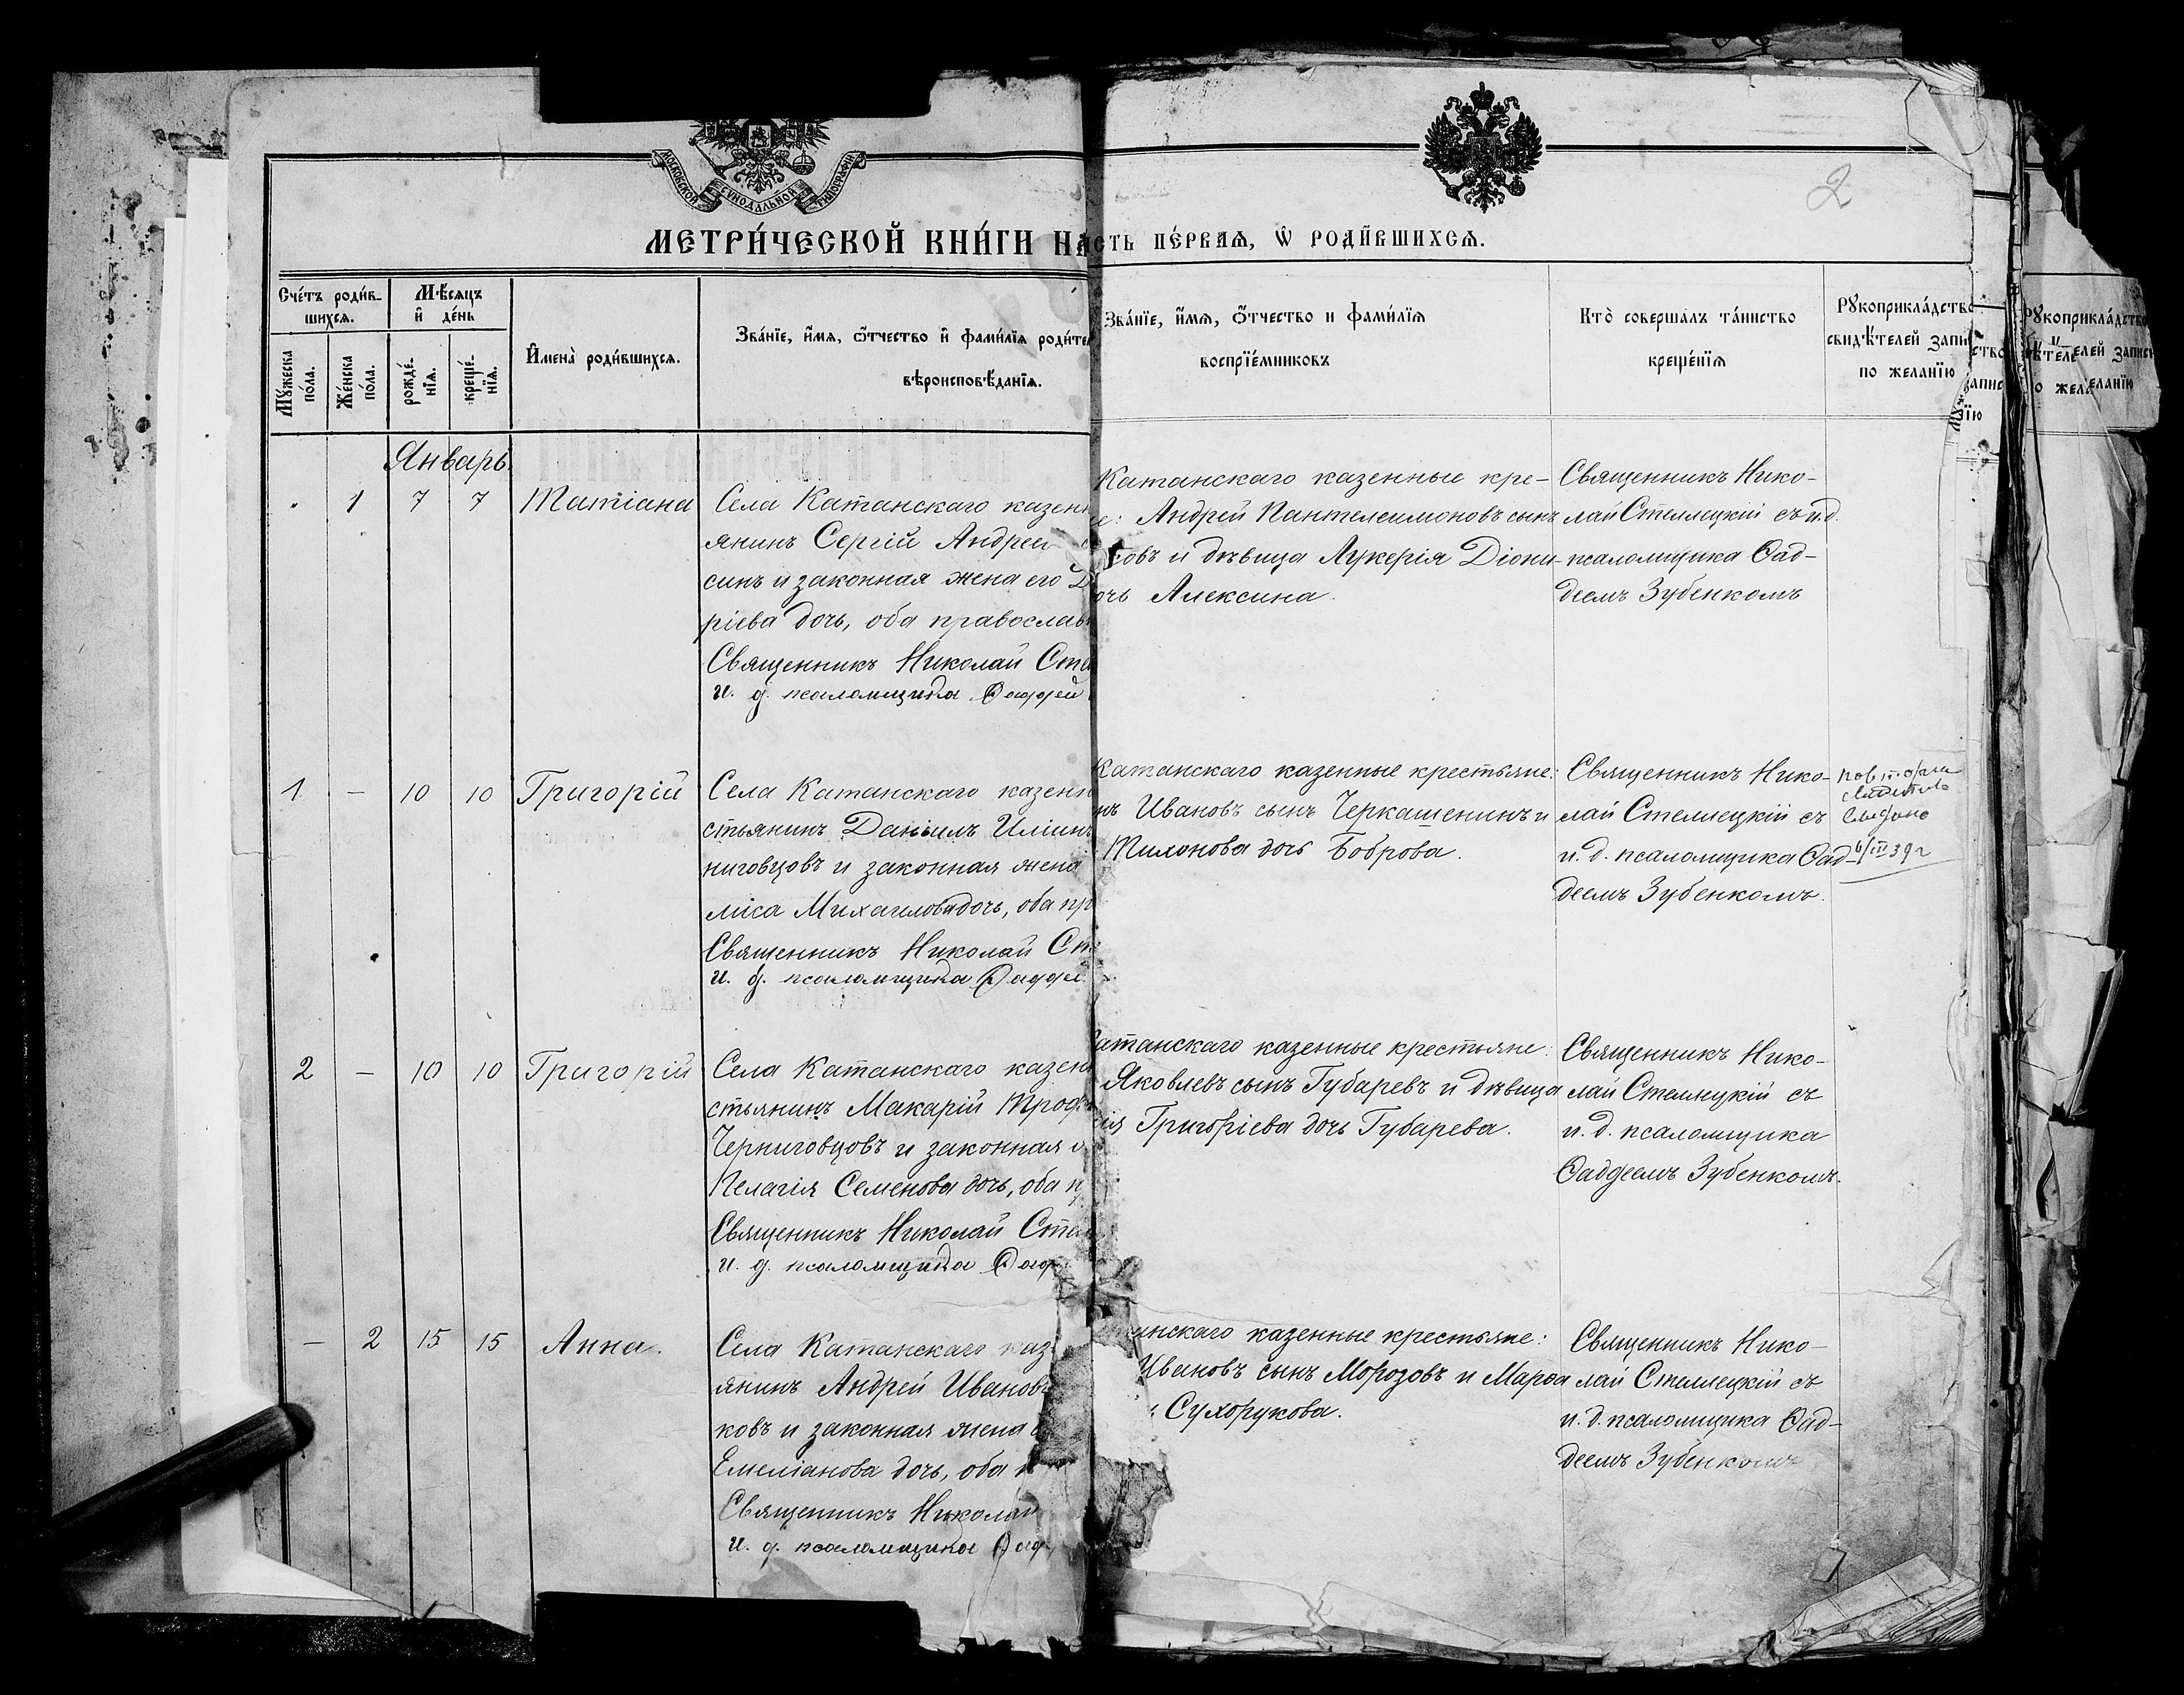 МОСКОВСКОЙ СУНОДАЛЬНОЙ ТИПОГРАФІИ
2
МЕТРИ́ЧЕСКОЙ КНИ́ГИ ЧАСТЬ ПЕ́РВАЯ, Ѡ РОДИ́ВШИХСЯ.
Сче́тъ роди́в-
шихся.
Мѣ́сяцъ
и҆ де́нь
Мꙋ́жеска
по́ла.
Же́нска
по́ла.
рожде́-
нїя.
креще́-
нїя.
И҆мена̀ роди́вшихся.
Зва́нїе, и҆́мя, ѻ҆́тчество и҆ фами́лїя роди́те
вѣроисповѣ́данїя.
Зва́нїе, и҆́мя, ѻ҆́тчество и фами́лїя
воспрїе́мниковъ
Кто̀ соверша́лъ та́инство
креще́нїя
Рꙋкоприкла́дство
свидѣ́телей запи
по желанїю
Январь.
1 7 7 Татіана
Села Катанскаго казен
янинъ Сергій Андреев
синъ и законная жена его
ріева дочь, оба православ
Священникъ Николай Сте
и. д. псаломщика Фаддей
Катанскаго казенные кре-
Андрей Пантелеимоновъ сынъ
ковъ и дѣвица Лукерія Діони-
очь Алексина.
Священникъ Нико-
лай Стеллецкій съ и.д.
псаломщика Фад-
деемъ Зубенкомъ
1 – 10 10 Григорій
Села Катанскаго казен
стьянинъ Даніилъ Иліинъ
ниговцовъ и законная жена
миса Михаилова дочь, оба пр
Священникъ Николай Сте
и. д. псаломщика Фадде
Катанскаго казенные крестьяне:
нъ Ивановъ сынъ Черкашенинъ и
Тихонова дочь Боброва.
Священникъ Нико-
лай Стеллецкій съ
и. д. псаломщика Фад-
деемъ Зубенкомъ.
6/III 39 г
2 – 10 10 Григорій
Села Катанскаго казен
стьянинъ Макарій Троф
Черниговцовъ и законная
Пелагія Семенова дочь, оба п
Священникъ Николай Стел
и. д. псаломщика Фад
атанскаго казенные крестьяне:
Яковлевъ сынъ Губаревъ и дѣвица
ія Григоріева дочь Губарева.
Священникъ Нико-
лай Стеллецкій съ
и. д. псаломщика
Фаддеемъ Зубенкомъ.
– 2 15 15 Анна.
Села Катанскаго каз
янинъ Андрей Ивановъ
ковъ и законная жена
Емеліанова дочь, оба
Священникъ Николай
и. д. псаломщика Фад
анскаго казенные крестьяне:
Ивановъ сынъ Морозовъ и Марѳа
Сухорукова.
Священникъ Нико-
лай Стеллецкій съ
и. д. псаломщика Фад-
деемъ Зубенкомъ